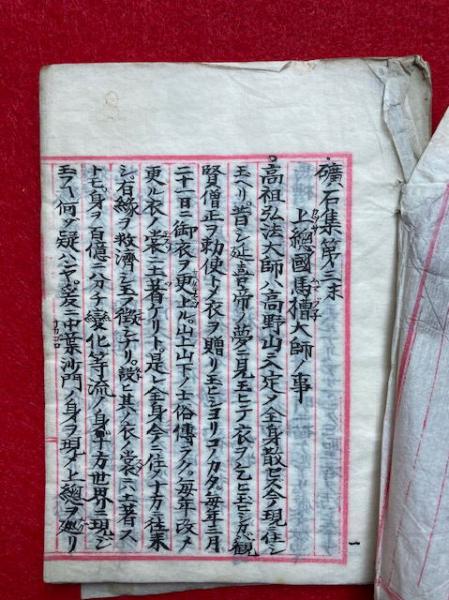 礦石集第三末
上總國馬橋大師ノ事
高祖弘法大師ハ高野山ニ入定ノ全身散セス今ニ現ニ住シ
玉ヘリ昔シ延喜帝ノ夢ニ見玉ヒテ衣ヲ乞ヒ玉ヒシカハ觀
賢僧正ヲ勅使トメ衣ヲ贈リ玉ヒシヨリコノカタ毎年三月
二十一日ニ御衣ヲ更ム山上山下ノ土俗傳ラク毎年改メ
更ル衣ノ裳ニ土著ケリト是レ全身今ニ住ノ十方ニ往來
シ有緣ヲ救濟シ玉フ徵ナリ設ヒ其ノ衣ノ裳ニハ土著ス
トモ身ヲ百億ニ分チ變化等流ノ身ヲ十方世界ニ現シ
玉フ何ノ疑ハアラン爰ニ中葉沙門ノ身ヲ現メ上總ヲ廻リ
一